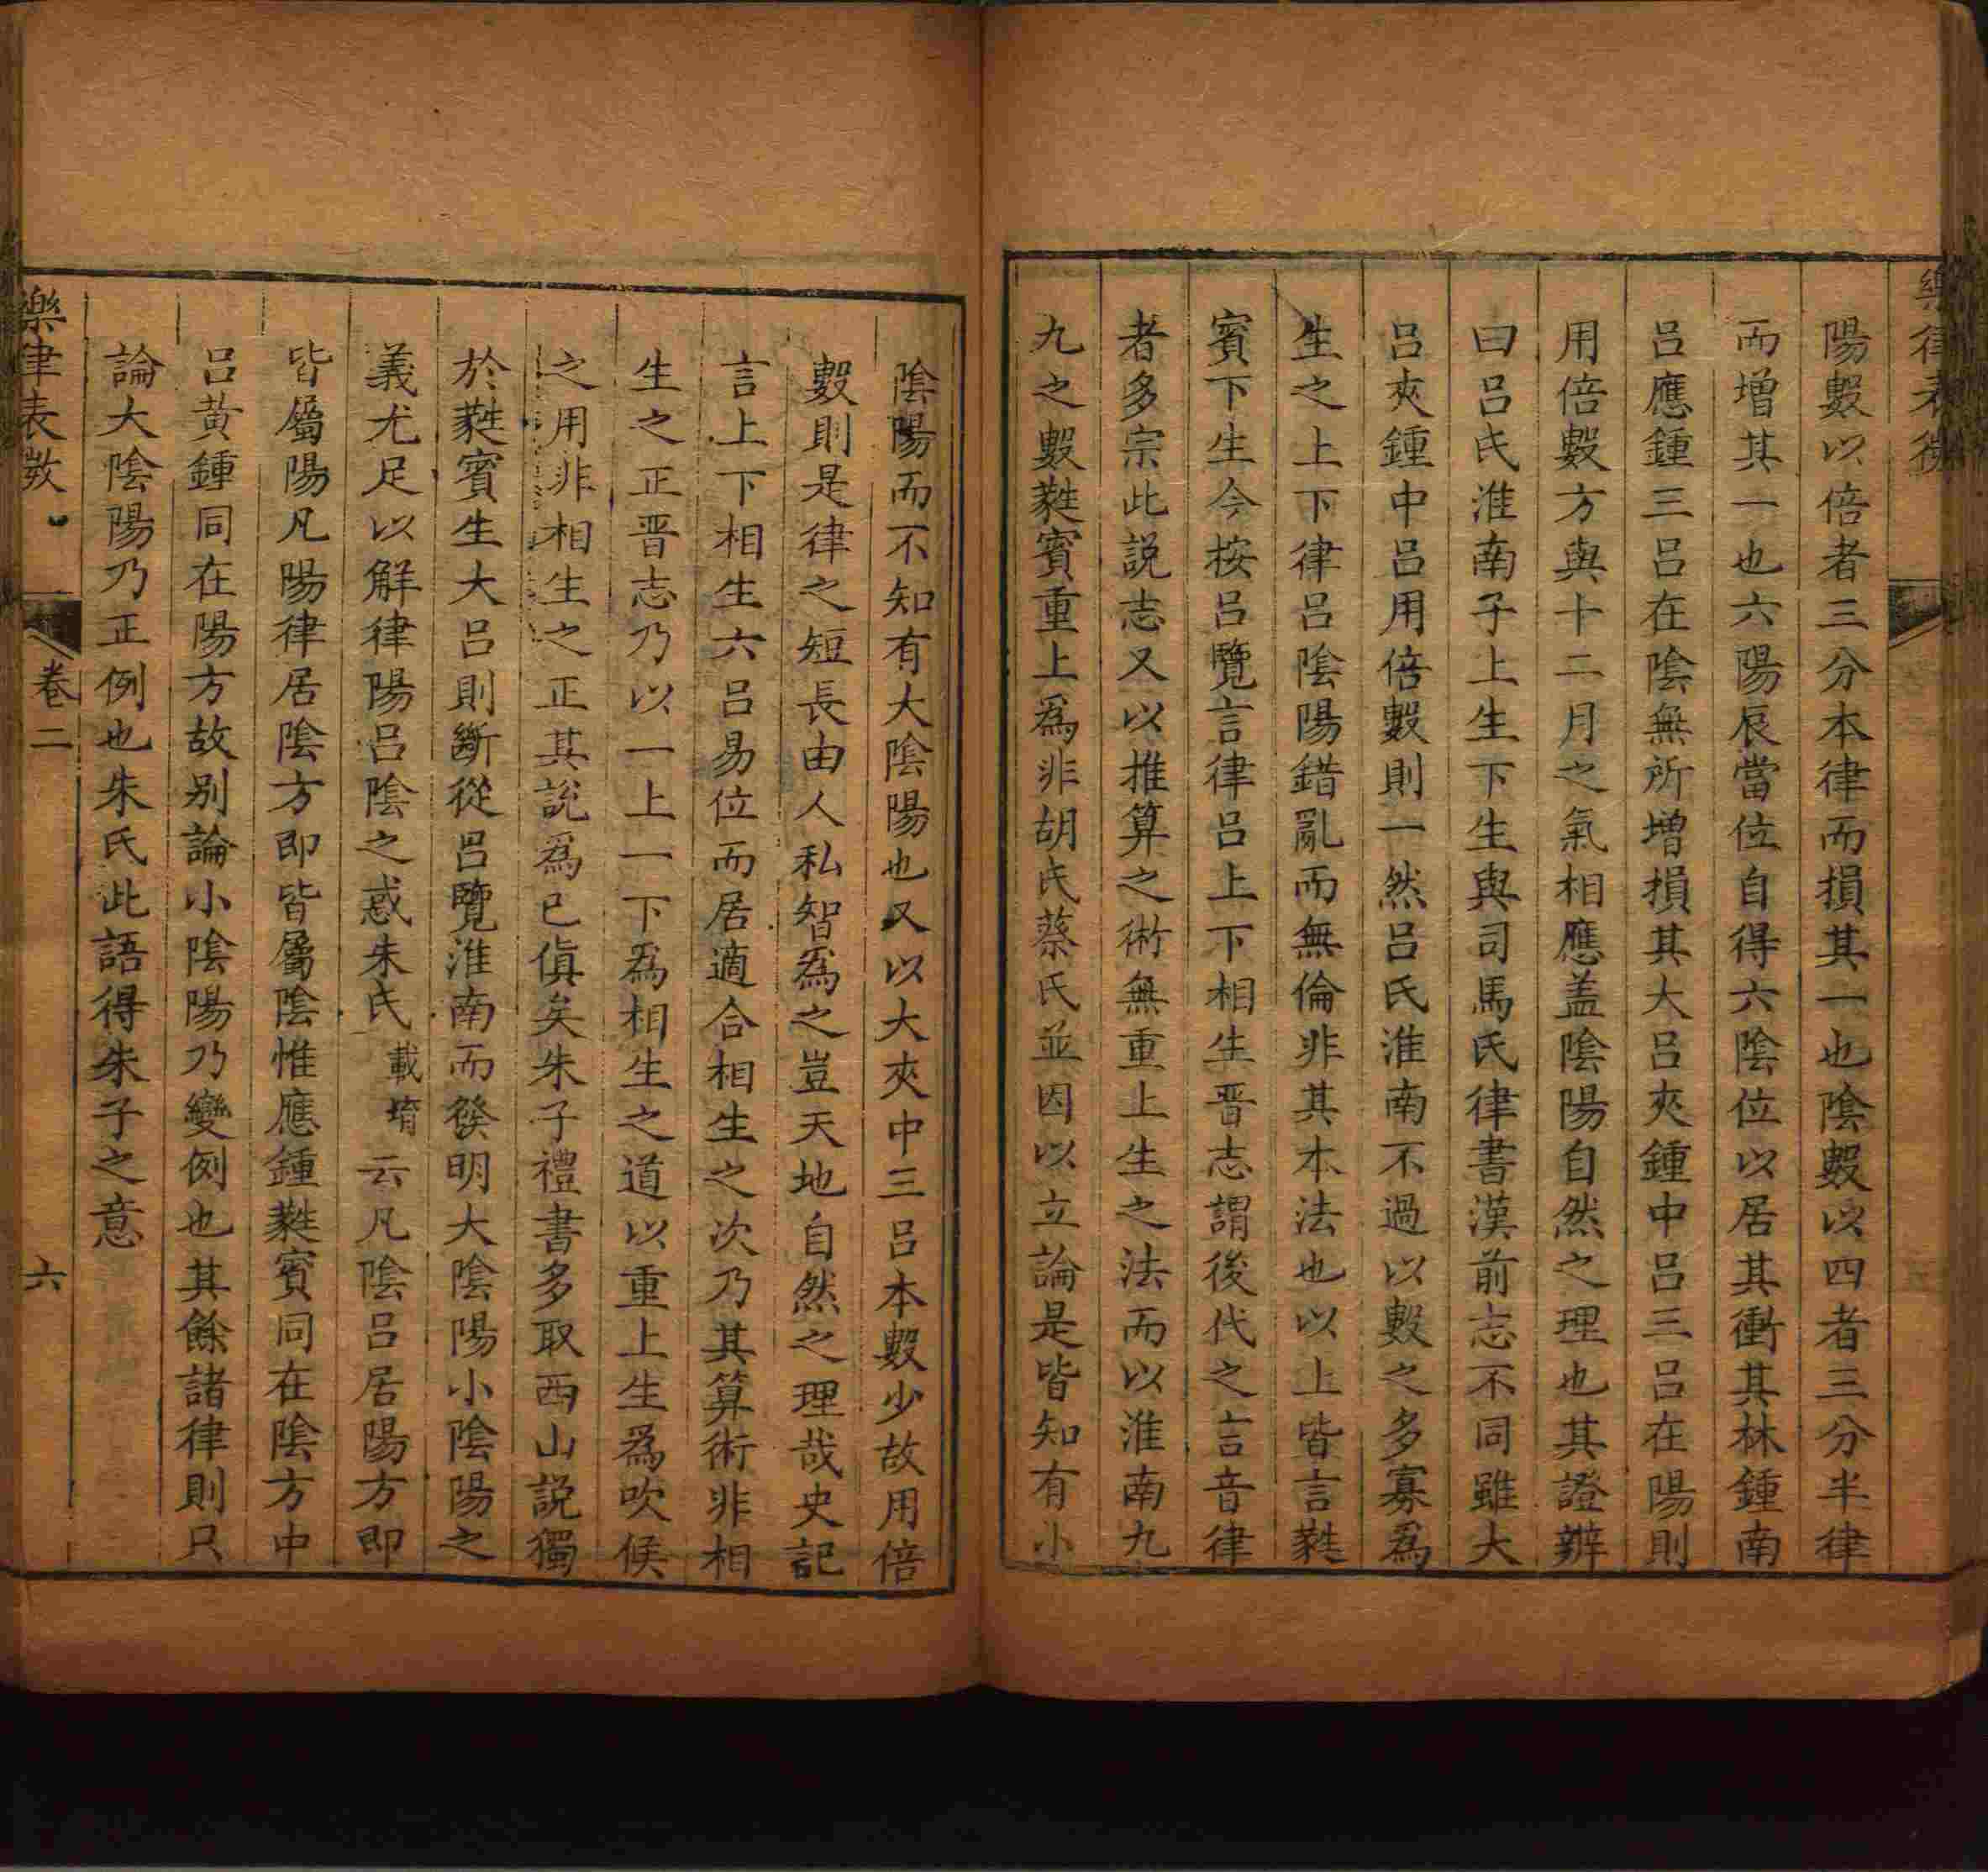 樂律表微
陽數以倍者三分本律而損其一也陰數以四者三分半律
而增其一也六陽辰當位自得六陰位以居其衝其林鍾南
呂應鍾三呂在陰無所增損其大呂夾鍾中呂三呂在陽則
用倍數方與十二月之氣相應盖陰陽自然之理也其證辨
曰呂氏淮南子上生下生與司馬氏律書漢前志不同雖大
呂夾鍾中呂用倍數則一然呂氏淮南不過以數之多寡爲
生之上下律呂陰陽錯亂而無倫非其本法也以上皆言蕤
賓下生今按呂覽言律呂上下相生晋志謂後代之言音律
者多宗此説志又以推算之術無重上生之法而以淮南九
九之數蕤賓重上爲非胡氏蔡氏並因以立論是皆知有小
陰陽而不知有大陰陽也又以大夾中三呂本數少故用倍
數則是律之短長由人私智爲之豈天地自然之理哉史記
言上下相生六呂易位而居適合相生之次乃其算術非相
生之正晋志乃以一上一下爲相生之道以重上生爲吹候
之用非相生之正其説爲已傎矣朱子禮書多取西山説獨
於蕤賓生大呂則斷從呂覽淮南而發明大陰陽小陰陽之
義尤足以解律陽呂陰之惑朱氏載堉云凡陰呂居陽方即
皆屬陽凡陽律居陰方即皆屬陰惟應鍾蕤賓同在陰方中
呂黄鍾同在陽方故别論小陰陽乃變例也其餘諸律則只
論大陰陽乃正例也朱氏此語得朱子之意
樂律表微
卷二
六